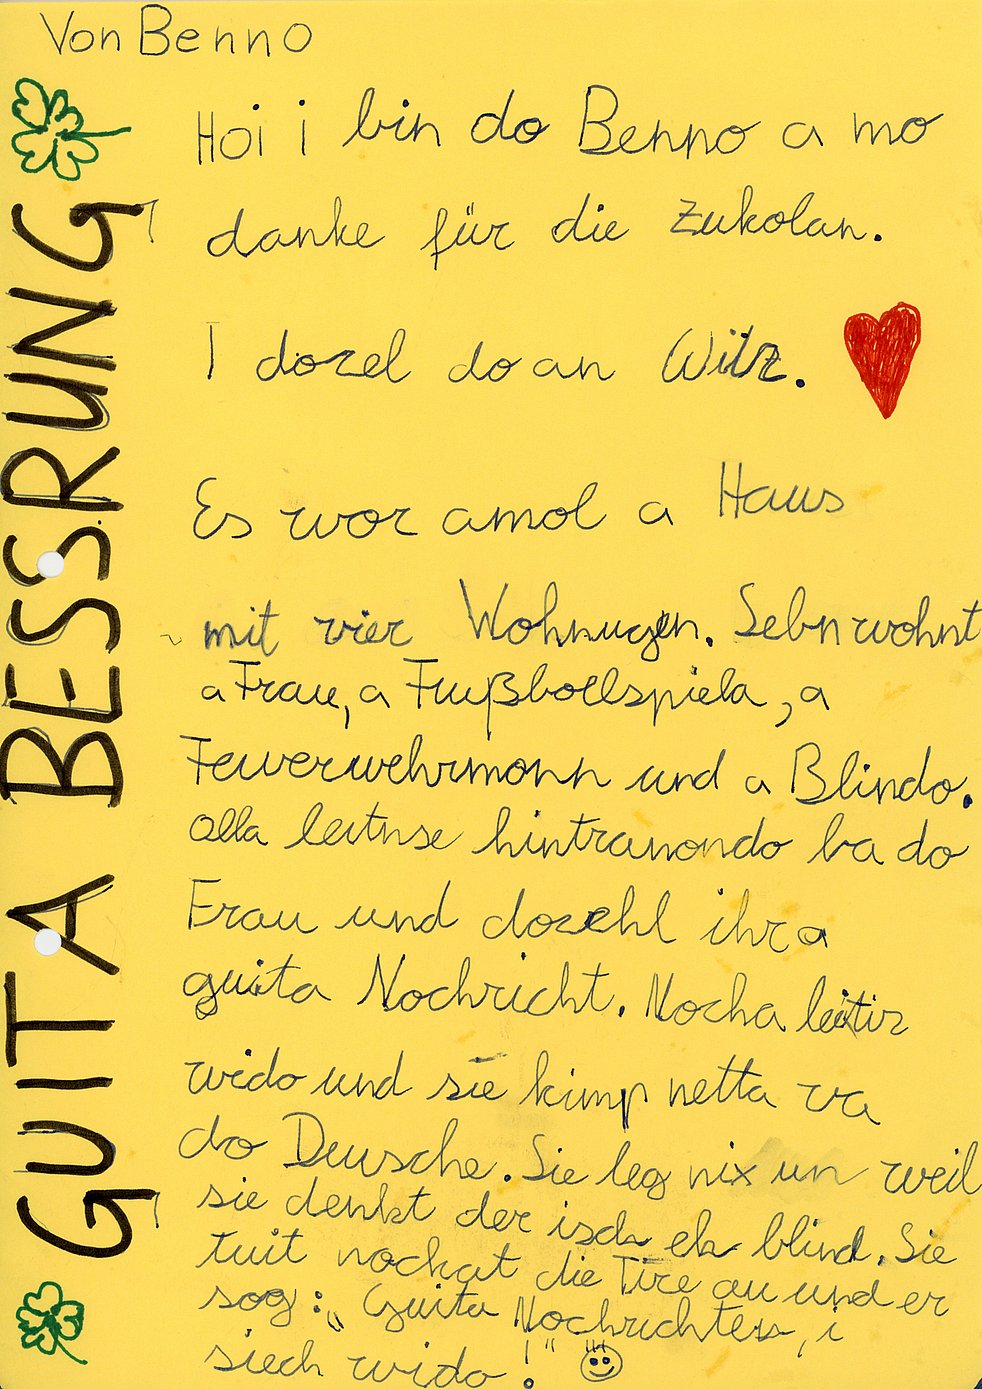 Von Benno
GUITA BESSRUNG
Hoi i bin do Benno a mo
danke für die Zukolan.
I dozel do an Witz.
Es wor amol a Haus
mit vier Wohnugen. Sebn wohnt
a Frau, a Fußbollspiela, a
Feuerwehrmonn und a Blindo.
Olla leitnse hintranondo ba do
Frau und dozehl ihra
guita Nochricht. Nocha leitir
wido und sie kimp netta va
do Dusche. Sie leg nix un weil
sie denkt der isch eh blind. Sie
tuit nockat die Tire au und er
sog: „Guita Nochrichten, i
siech wido!"